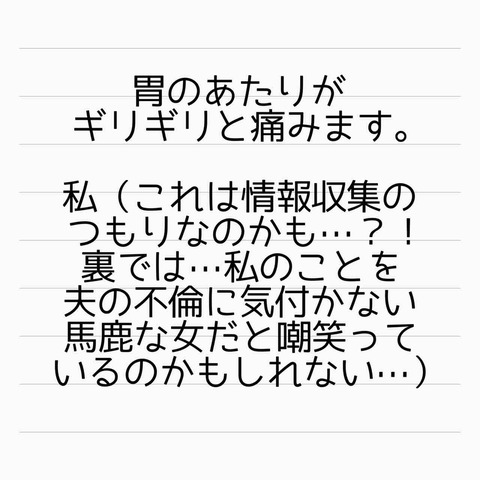 胃のあたりが
ギリギリと痛みます。
私（これは情報収集の
つもりなのかも…？！
裏では…私のことを
夫の不倫に気付かない
馬鹿な女だと嘲笑って
いるのかもしれない…）